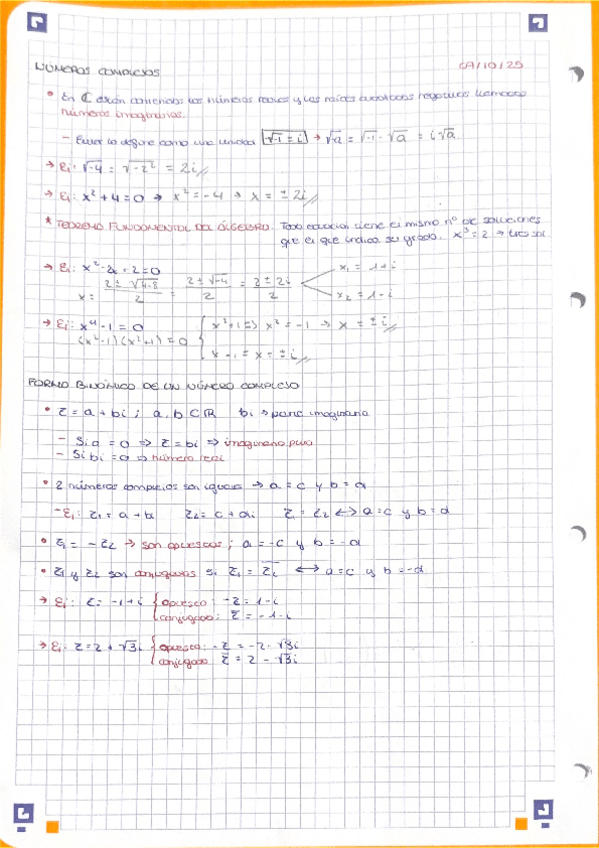 NÚMEROS COMPLEJOS 07/10/25
• En ℂ están contenidos los números reales y las raíces cuadradas negativas llamadas
números imaginarios.
- Euler lo define como una unidad √-1 = i → √a = √-1 · √a = i√a
→ Ej: √-4 = √-2² = 2i
→ Ej: x² + 4 = 0 → x² = -4 → x = ± 2i
* TEOREMA FUNDAMENTAL DEL ÁLGEBRA. Toda ecuación tiene el mismo nº de soluciones
que el que indica su grado. x³ = 2 → tres sol.
→ Ej: x² - 2x + 2 = 0
x = 2 ± √4-8 / 2 = 2 ± √-4 / 2 = 2 ± 2i / 2 x₁ = 1 + i
x₂ = 1 - i
→ Ej: x⁴ - 1 = 0 x² + 1 => x² = -1 → x = ± i
(x² - 1) (x² + 1) = 0
x - 1 = x = ± i
FORMA BINÓMICA DE UN NÚMERO COMPLEJO
• z = a + bi ; a, b C ℝ bi → parte imaginaria
- Si a = 0 => z = bi => imaginario puro
- Si bi = 0 => número real
• 2 números complejos son iguales → a = c y b = d
- Ej: z₁ = a + bi z₂ = c + di z₁ = z₂ <-> a = c y b = d
• z₁ = - z₂ → son opuestos ; a = -c y b = -d
• z₁ y z₂ son conjugados si z₁ = z̄₂ <-> a = c y b = -d
→ Ej: z = -1 + i { opuesto: -z = 1 - i
conjugado: z̄ = -1 - i
→ Ej: z = 2 + √3i { opuesto: -z = -2 - √3i
conjugado: z̄ = 2 - √3i